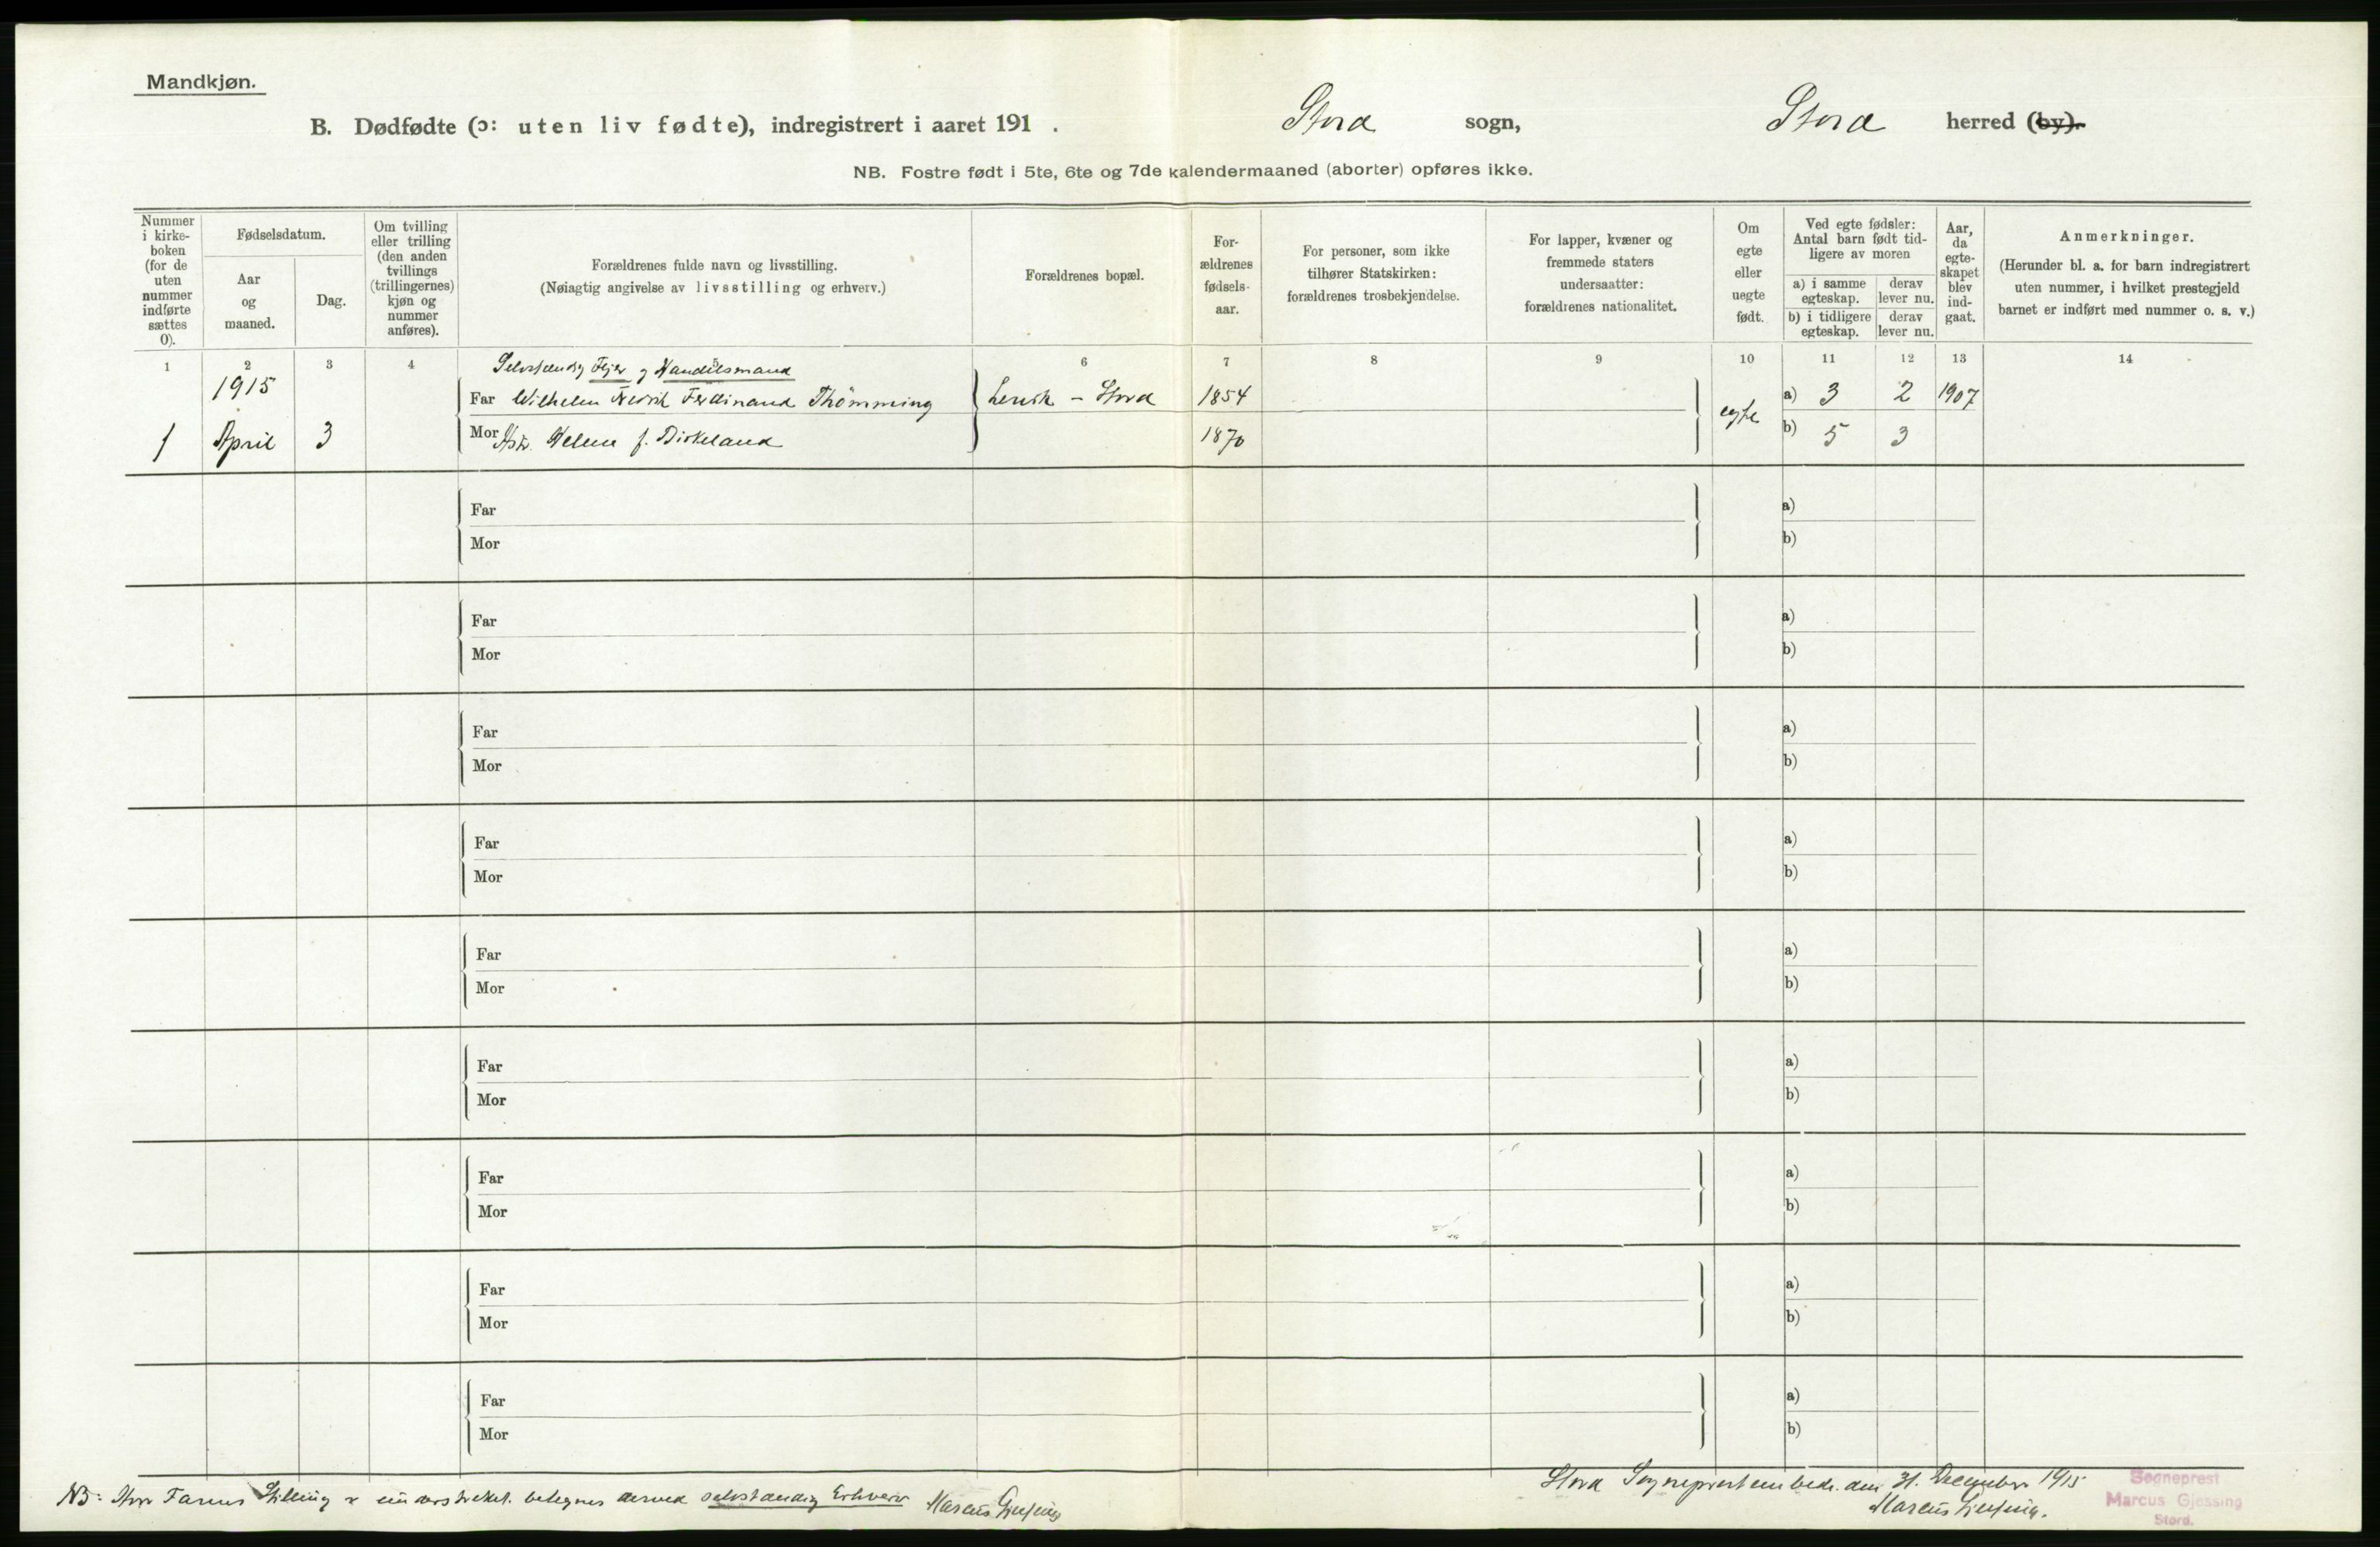 Mandkjøn.
B. Dødfødte (ɔ: uten liv fødte), indregistrert i aaret 191 . Stord sogn, Stord herred (by).
NB. Fostre født i 5te, 6te og 7de kalendermaaned (aborter) opføres ikke.
Nummer i kirke-boken (for de uten nummer indførte sættes 0).
Fødselsdatum.
Aar og maaned.
Dag.
Om tvilling eller trilling (den anden tvillings (trillingernes) kjøn og nummer anføres).
Forældrenes fulde navn og livsstilling.
(Nøiagtig angivelse av livsstilling og erhverv.)
Forældrenes bopæl.
For-ældrenes fødsels-aar.
For personer, som ikke tilhører Statskirken: forældrenes trosbekjendelse.
For lapper, kvæner og fremmede staters undersaatter: forældrenes nationalitet.
Om egte eller uegte født.
Ved egte fødsler: Antal barn født tid-ligere av moren
a) i samme egteskap.
derav lever nu.
b) i tidligere egteskap.
derav lever nu.
Aar, da egte-skapet blev ind-gaat.
Anmerkninger.
(Herunder bl. a. for barn indregistrert uten nummer, i hvilket prestegjeld barnet er indført med nummer o. s. v.)
1 2 3 4 5 6 7 8 9 10 11 12 13 14
Selvstændig Eier og Handelsmand
1915 Far Wilhelm Fredrik Ferdinand Thömming Lervik - Stord 1854 egte a) 3 2 1907
1 April 3 Mor Helene f. Birkeland 1870 b) 5 3
Far a)
Mor b)
Far a)
Mor b)
Far a)
Mor b)
Far a)
Mor b)
Far a)
Mor b)
Far a)
Mor b)
Far a)
Mor b)
Far a)
Mor b)
Far a)
Mor b)
NB: Hvor Farens Stilling er understreket, betegnes derved selvstændig Erhverv Marcus Gjessing
Stord Sogneprestembede den 31. December 1915
Marcus Gjessing.
Sogneprest
Marcus Gjessing
Stord.